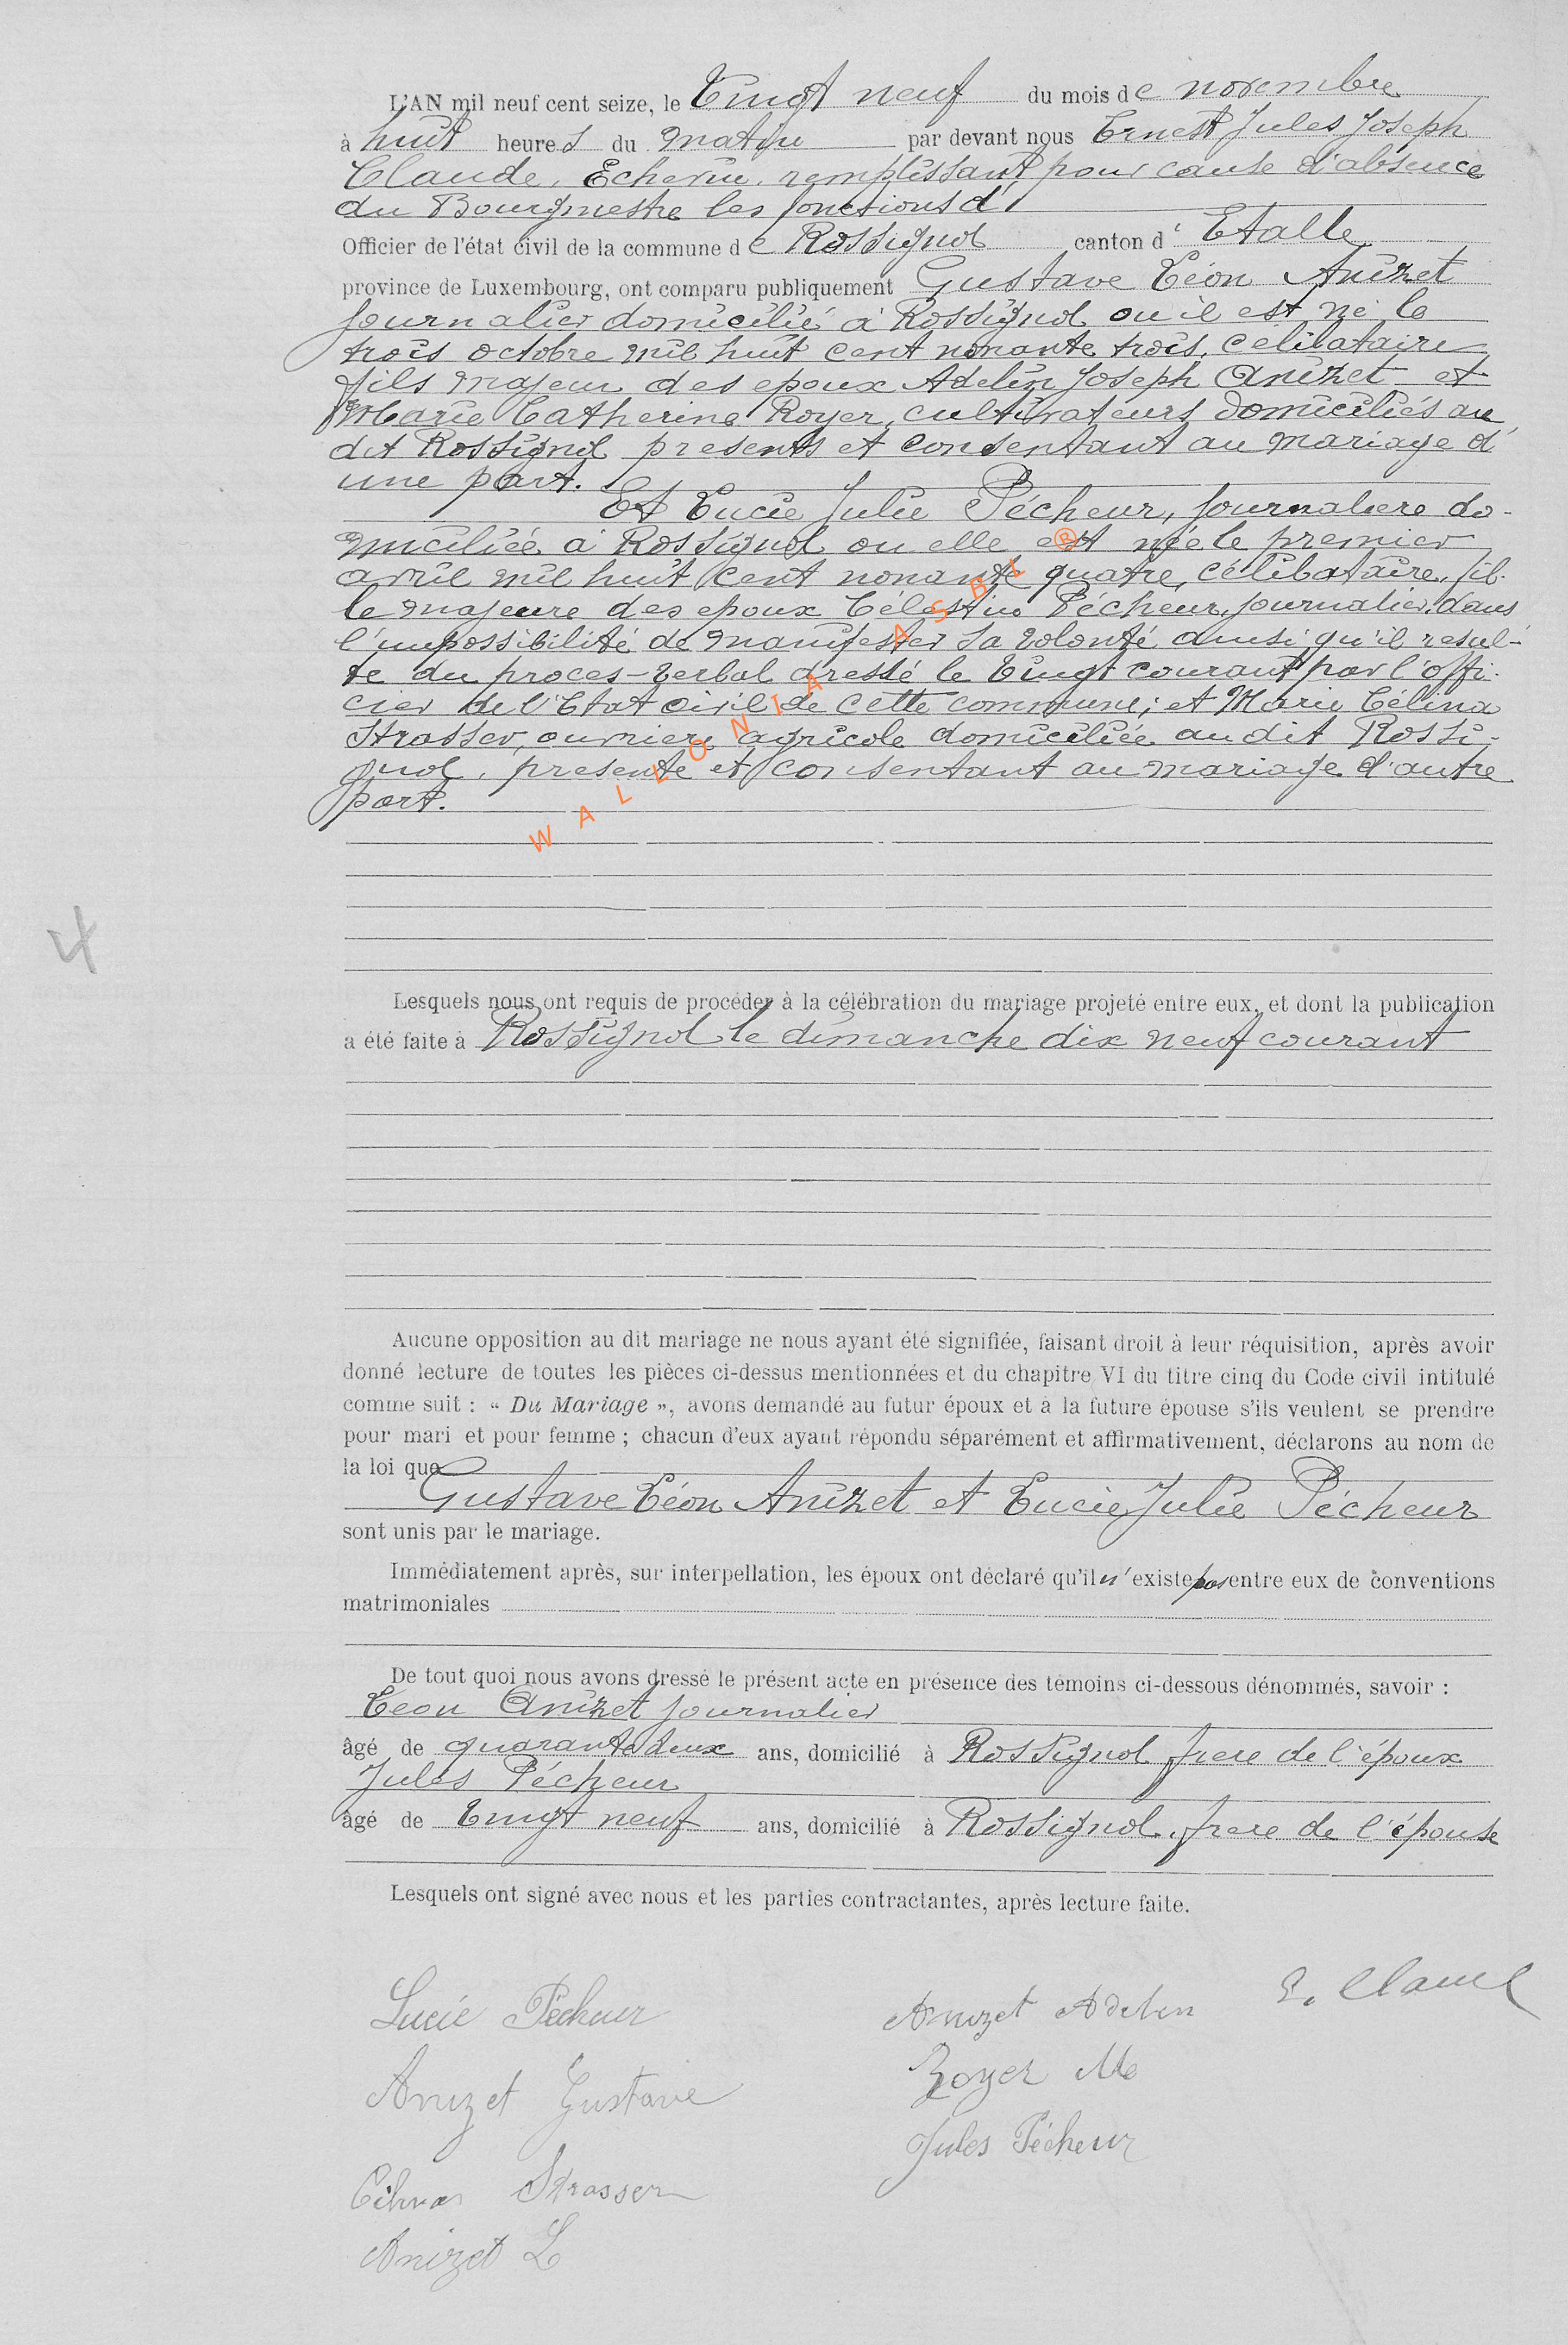 L'AN mil neuf cent seize, le Vingt neuf du mois de novembre
à huit heures du matin par devant nous Ernest Jules Joseph
Claude, Echevin, remplissant pour cause d'absence
du Bourgmestre les fonctions d'
Officier de l'état civil de la commune de Rossignol canton d'Etalle
province de Luxembourg, ont comparu publiquement Gustave Léon Anizet
journalier domicilié à Rossignol ou il est né le
trois octobre mil huit cent nonante trois, celibataire
fils majeur des epoux Adelin Joseph Anizet et
Marie Catherine Royer, cultivateurs domiciliés au
dit Rossignol presents et consentant au mariage d'
une part.
Et Lucie Julie Pécheur, journaliere do-
miciliée à Rossignol ou elle est née le premier
avril mil huit cent nonante quatre, célibataire, fil-
le majeure des epoux Célestin Pécheur, journalier, dans
l'impossibilité de manifester sa volonté ainsi qu'il resul-
te du proces-verbal dressé le vingt courant par l'offi-
cier de l'Etat civil de cette commune; et Marie Célina
Strasser, ouvriere agricole domiciliée au dit Rossi-
gnol, presente et consentant au mariage d'autre
part.
WALLONIA ASBL ®
4
Lesquels nous ont requis de procéder à la célébration du mariage projeté entre eux, et dont la publication
a été faite à Rossignol le dimanche dix neuf courant
Aucune opposition au dit mariage ne nous ayant été signifiée, faisant droit à leur réquisition, après avoir
donné lecture de toutes les pièces ci-dessus mentionnées et du chapitre VI du titre cinq du Code civil intitulé
comme suit : « Du Mariage », avons demandé au futur époux et à la future épouse s'ils veulent se prendre
pour mari et pour femme ; chacun d'eux ayant répondu séparément et affirmativement, déclarons au nom de
la loi que
Gustave Léon Anizet et Lucie Julie Pécheur
sont unis par le mariage.
Immédiatement après, sur interpellation, les époux ont déclaré qu'il n'existe pas entre eux de conventions
matrimoniales
De tout quoi nous avons dressé le présent acte en présence des témoins ci-dessous dénommés, savoir :
Léon Anizet journalier
âgé de quarante deux ans, domicilié à Rossignol frere de l'époux
Jules Pécheur
âgé de Vingt neuf ans, domicilié à Rossignol, frere de l'épouse
Lesquels ont signé avec nous et les parties contractantes, après lecture faite.
Lucie Pécheur Anizet Adelin E. Claude
Anizet Gustave Royer Me
Jules Pécheur
Célina Strasser
Anizet L